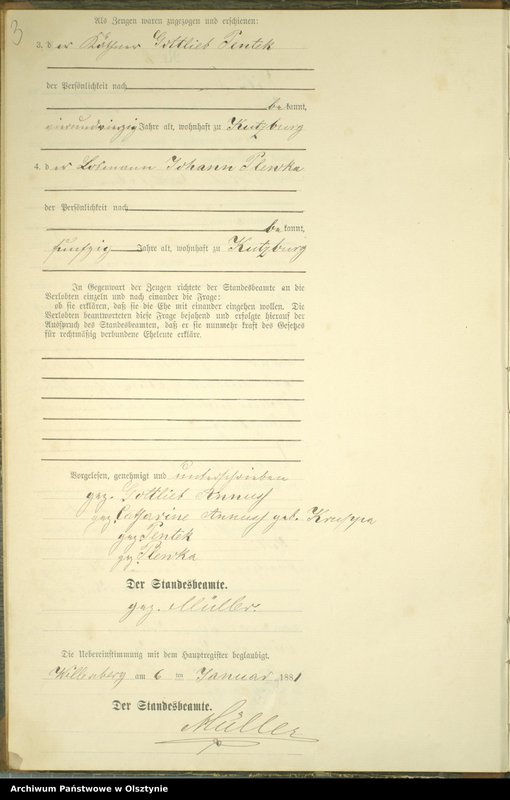 3
Als Zeugen waren zugezogen und erschienen:
3. der Käthner Gottlieb Pentek
der Persönlichkeit nach
bekannt,
einundvierzig Jahre alt, wohnhaft zu Kutzburg
4. der Losmann Johann Plewka
der Persönlichkeit nach
bekannt,
funfzig Jahre alt, wohnhaft zu Kutzburg
In Gegenwart der Zeugen richtete der Standesbeamte an die
Verlobten einzeln und nach einander die Frage:
ob sie erklären, daß sie die Ehe mit einander eingehen wollen. Die
Verlobten beantworteten diese Frage bejahend und erfolgte hierauf der
Ausspruch des Standesbeamten, daß er sie nunmehr kraft des Gesetzes
für rechtmäßig verbundene Eheleute erkläre.
Vorgelesen, genehmigt und unterschrieben
gez. Gottlieb Annuß
gez Catharine Annuß geb. Kruppa
gez Pentek
gez Plewka
Der Standesbeamte.
gez. Müller.
Die Uebereinstimmung mit dem Hauptregister beglaubigt.
Willenberg am 6 ten Januar 1881
Der Standesbeamte.
Müller
Archiwum Państwowe w Olsztynie